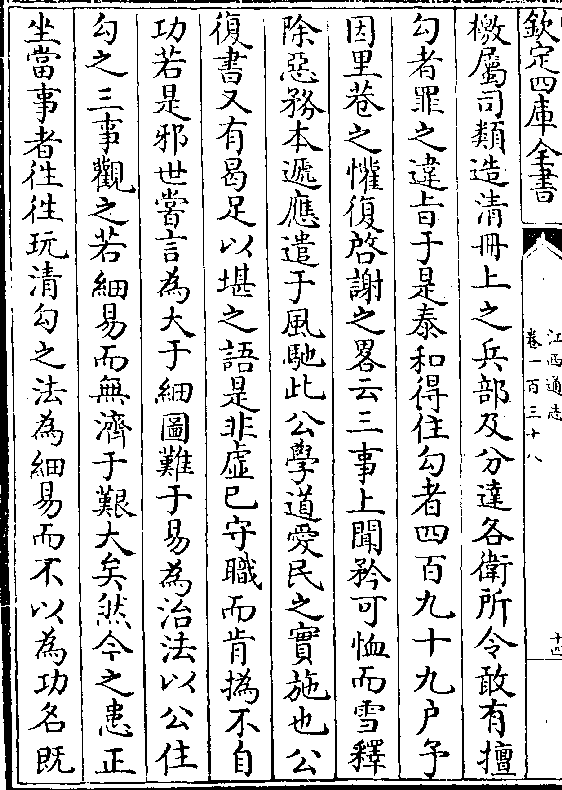 欽定四庫全書
江西通志
卷一百三十八
十四
檄屬司類造清冊上之兵部及分達各衛所令敢有擅
勾者罪之違㫖于是泰和得住勾者四百九十九户予
因里巷之懽復啓謝之畧云三事上聞矜可恤而雪釋
除惡務本遞應遣于風馳此公學道愛民之實施也公
復書又有曷足以堪之語是非虚已守職而肯撝不自
功若是邪世嘗言為大于細圖難于易為治法以公住
勾之三事觀之若細易而無濟于艱大矣然今之患正
坐當事者徃徃玩清勾之法為細易而不以為功名既